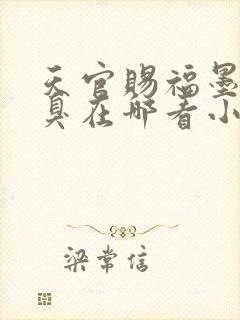 天官赐福墨
臭在哪看小
梁常信